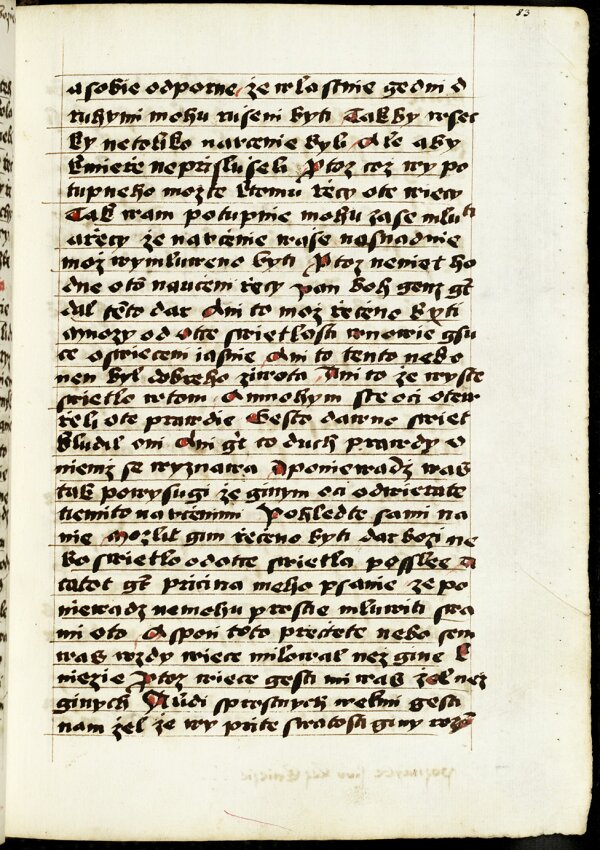 83
a sobie odporne že wlastnie gedni d
ruhymi mohu ruseni byti Takby wsec
ky netoliko narcenie byli Ale aby
kmieře neprislušeli Ptoz coz wy po
tupneho mozte ktomu řecy ote wiecy
Tak wam potupnie mohu zase mluti
a řecy že narčenie waše nesnadnie
moz wymluweno byti Ptoz nemiet ho
dne oto naučeni řecy pan boh genz gt
dal tento dar Ani to moz řečeno byti
Mnozy od otce swietlosti wnowie gsu
ce oswieceni iasnie Ani to tento nebo
nen byl dobreho ziwota Ani to že wyste
swietlo wtom A mnohym ste oci otew
řeli ote prawdie Gesto dawno swiet
bludil oni Ani gt to duch prawdy o
niemz se wyznawa A poniewadz was
tak powysugi že ginym oci odwierate
tiemito narcenimi Pohledte sami na
nie Mozlit gim řečeno byti dar bozi ne
bo swietlo od otce swietla possleé A
tatot gt pricina meho psanie že po
niewadz nemohu prostie mluwiti swa
mi oto Aspon toto prectete nebo sem
was wzdy wiece milowal nez gine k
niezie Ptoz wiece gesti mi was žel nez
ginych A lidi sprostnych welmi gesti
nam žel že wy prite swatosti giny roz